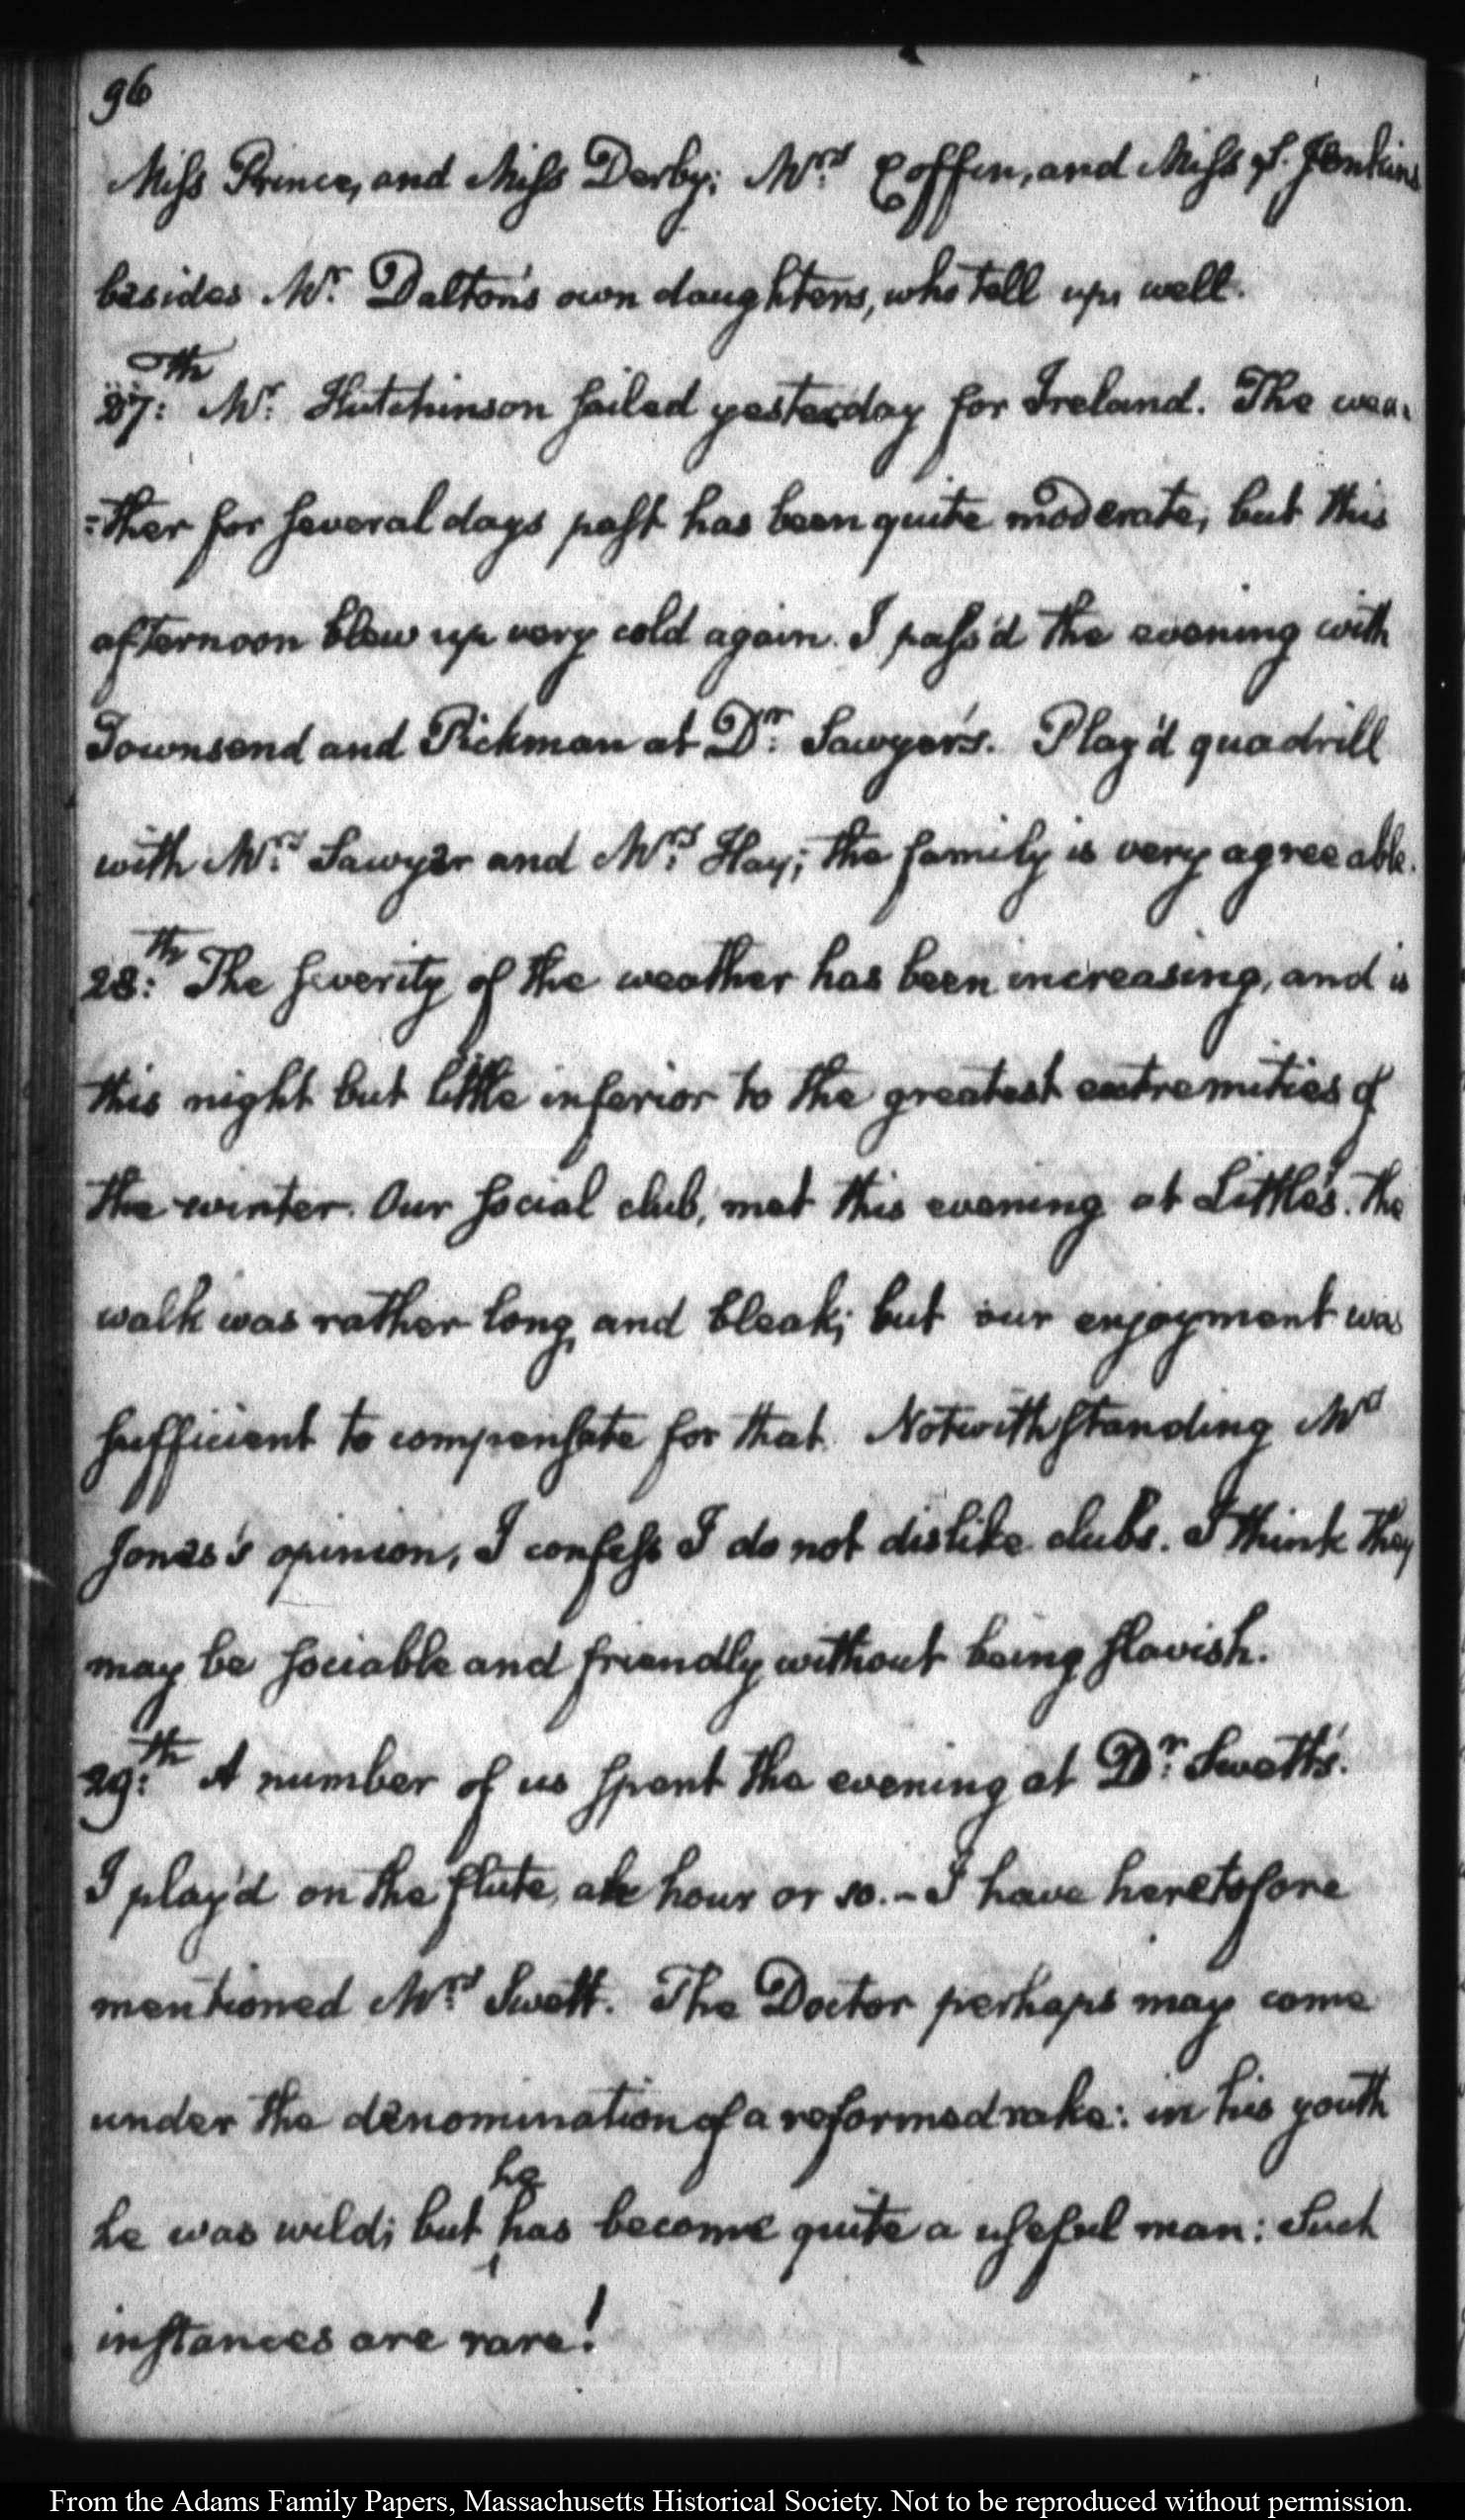 96
Miss Prince, and Miss Derby; Mrs. Coffin, and Miss S. Jenkins
besides Mr. Dalton's own daughters, who tell up well.
27:th Mr. Hutchinson sailed yesterday for Ireland. The wea-
=ther for several days past has been quite moderate, but this
afternoon blew up very cold again. I pass'd the evening with
Townsend and Pickman at Dr. Sawyer's. Play'd quadrill
with Mrs. Sawyer and Mrs. Hay; the family is very agreeable.
28:th The severity of the weather has been increasing, and is
this night but little inferior to the greatest extremities of
the winter. Our social club, met this evening at Little's. The
walk was rather long, and bleak; but our enjoyment was
sufficient to compensate for that. Notwithstanding Mrs
Jones's opinion, I confess I do not dislike clubs. I think they
may be sociable and friendly without being slavish.
29:th A number of us spent the evening at Dr. Swett's.
I play'd on the flute, an hour or so.- I have heretofore
mentioned Mrs. Swett. The Doctor perhaps may come
under the denomination of a reformed rake: in his youth
he was wild; but he has become quite a useful man: Such
instances are rare!
From the Adams Family Papers, Massachusetts Historical Society. Not to be reproduced without permission.